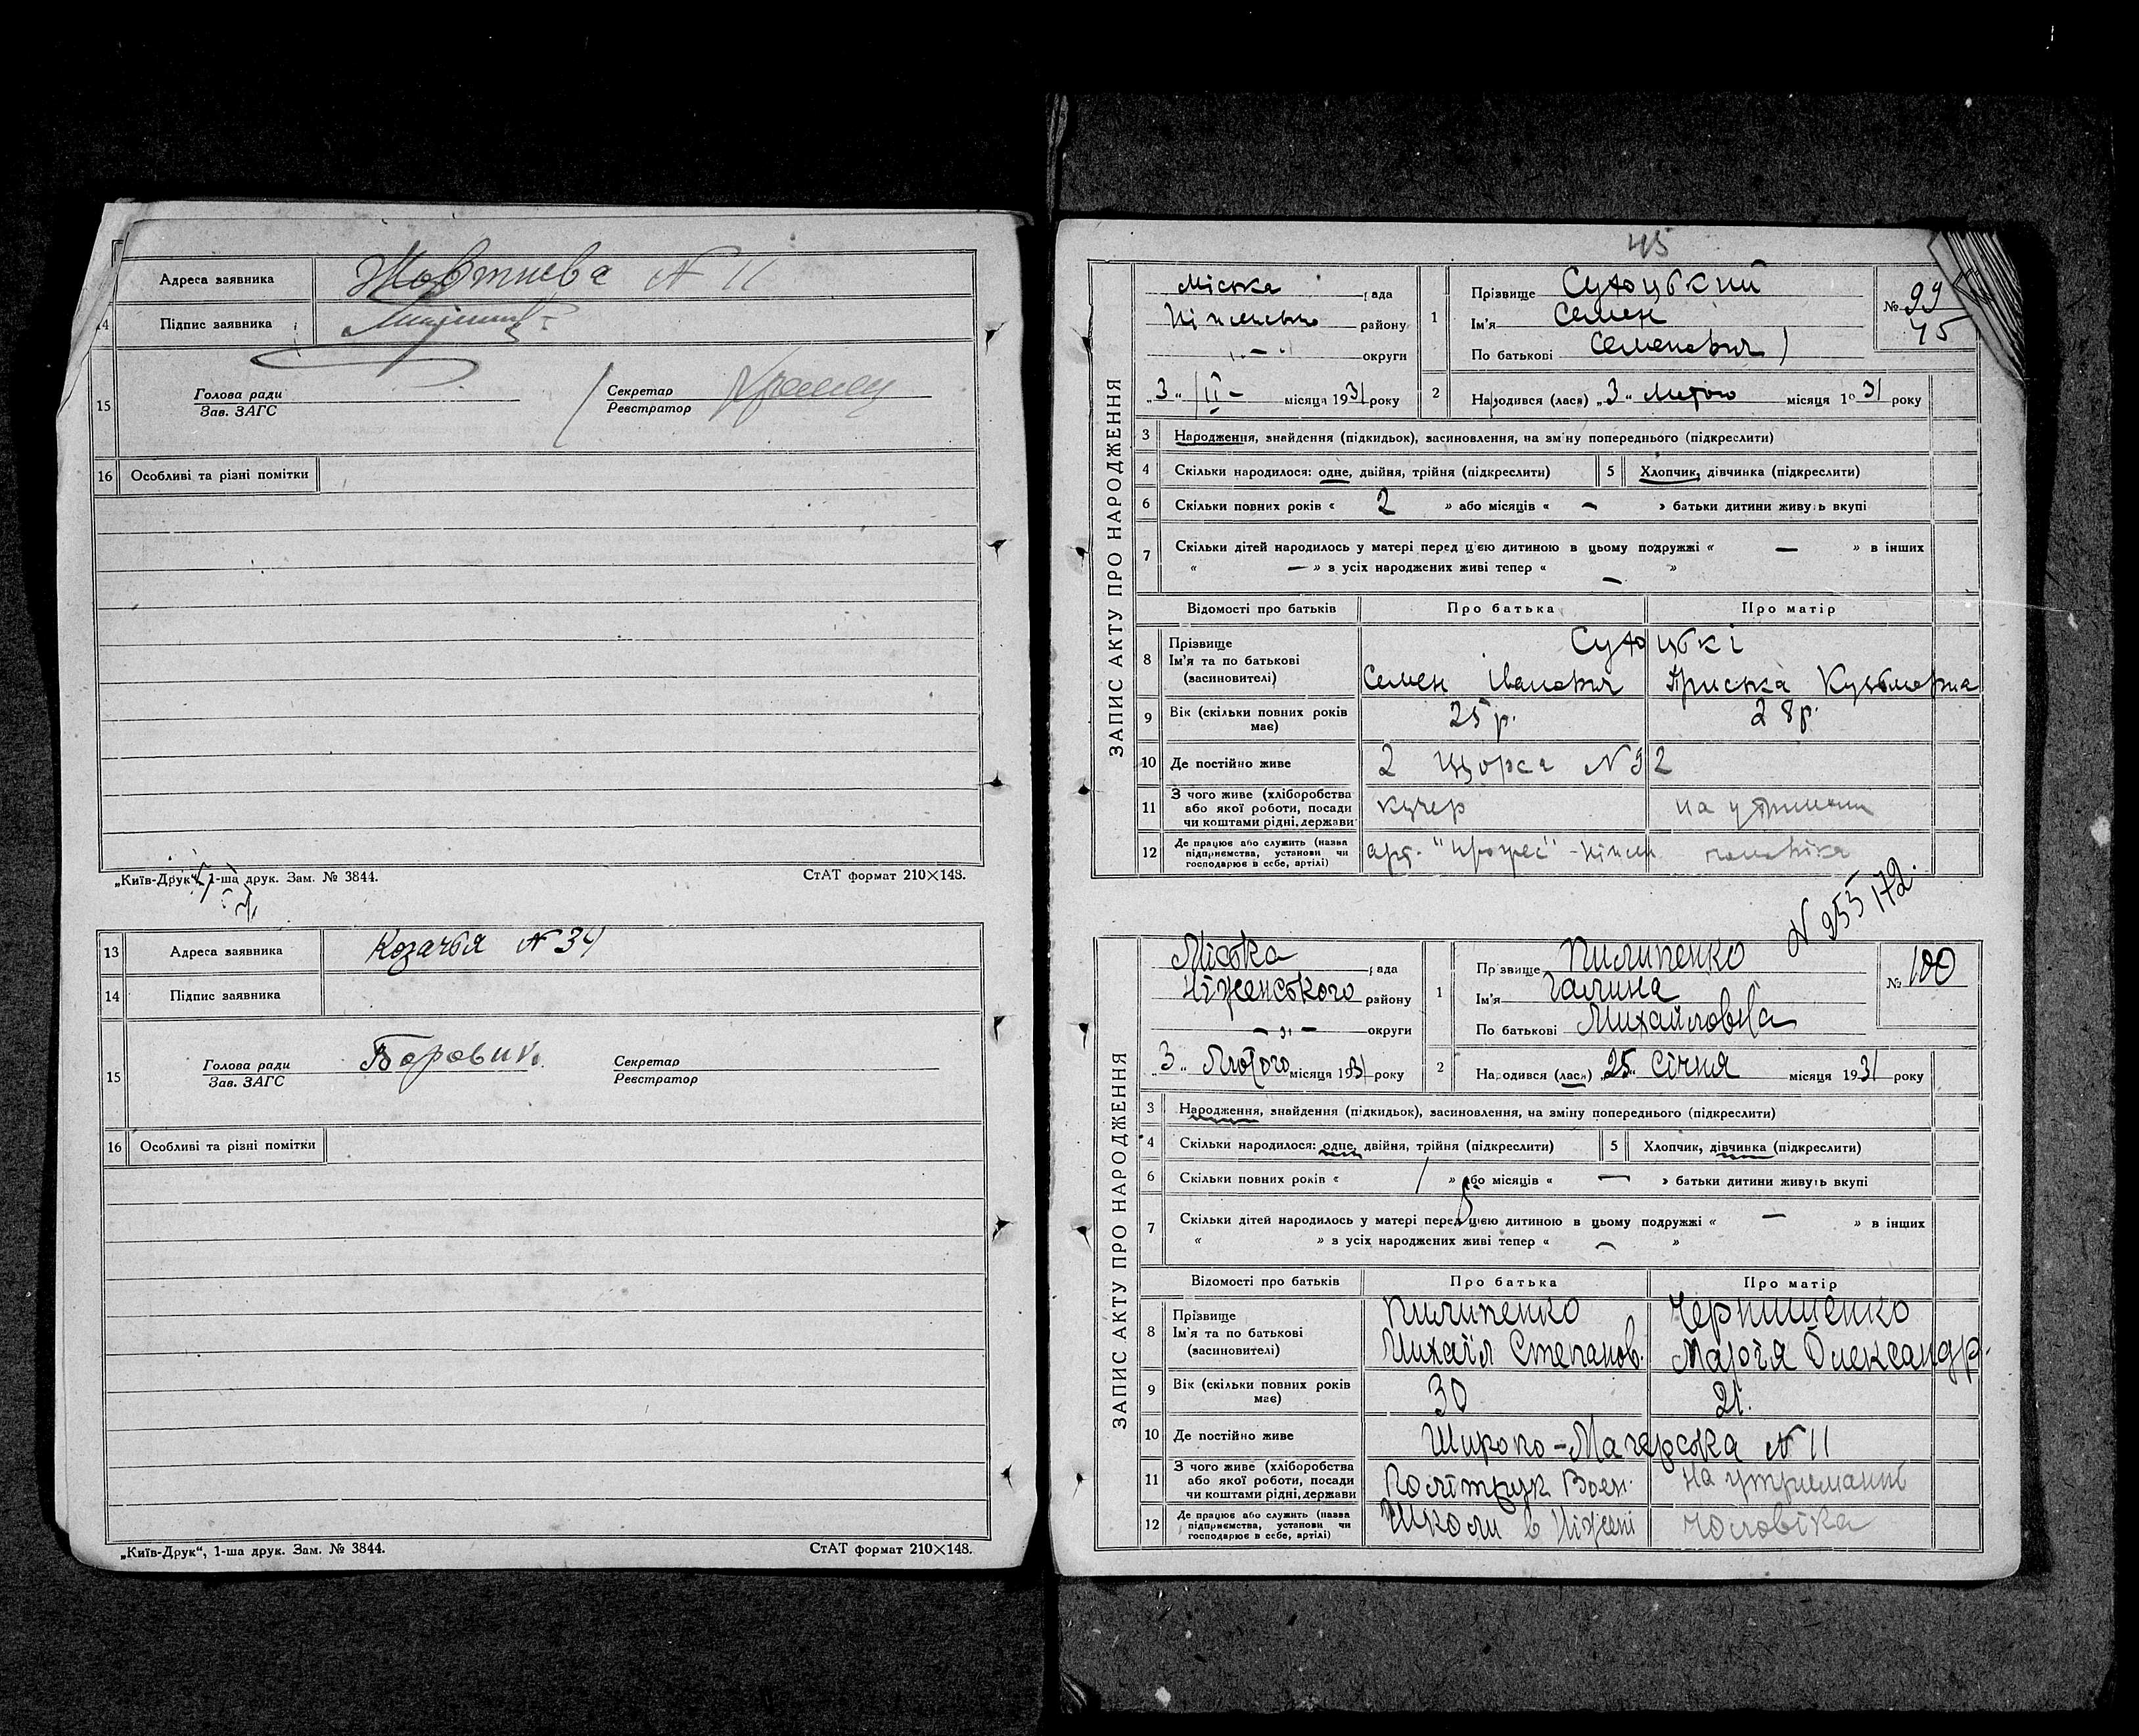 Адреса заявника Жовтнева № 11
14 Підпис заявника
15 Голова ради
Зав. ЗАГС
Секретар
Реєстратор
16 Особливі та різні помітки
„Київ-Друк“, 1-ша друк. Зам. № 3844.
СтАТ формат 210×148.
13 Адреса заявника Козачья № 34
14 Підпис заявника
15 Голова ради
Зав. ЗАГС
Боровик
Секретар
Реєстратор
16 Особливі та різні помітки
„Київ-Друк“, 1-ша друк. Зам. № 3844.
СтАТ формат 210×148.
45
ЗАПИС АКТУ ПРО НАРОДЖЕННЯ
Міська рада
району
— „ — округи
„3“ / II – місяця 1931 року
1 Прізвище
Ім'я Семен
По батькові Семенович
№ 99
45
2 Народився (лася) „3“ Лютого місяця 1931 року
3 Народження, знайдення (підкидьок), засиновлення, на зміну попереднього (підкреслити)
4 Скільки народилося: одне, двійня, трійня (підкреслити)
5 Хлопчик, дівчинка (підкреслити)
6 Скільки повних років « 2 » або місяців « — » батьки дитини живуть вкупі
7 Скільки дітей народилось у матері перед цією дитиною в цьому подружжі « — » в інших
« — » з усіх народжених живі тепер « — »
Відомості про батьків Про батька Про матір
8 Прізвище
Ім'я та по батькові
(засиновителі)
Семен Іванович Приська Кузьмовна
9 Вік (скільки повних років має) 25 р. 28 р.
10 Де постійно живе 2 Щорса № 92
11 З чого живе (хліборобства або якої роботи, посади чи коштами рідні, держави
кучер на утриманні
12 Де працює або служить (назва підприємства, установи чи господарює в себе, артілі)
арт. "Прогрес" - Ніжен чоловіка
N 955172.
ЗАПИС АКТУ ПРО НАРОДЖЕННЯ
Міська рада
Ніженського району
— „ — округи
„3“ Лютого місяця 1931 року
1 Прізвище Пилипенко
Ім'я Галина
По батькові Михайловна
№ 100
2 Народився (лася) „25“ Січня місяця 1931 року
3 Народження, знайдення (підкидьок), засиновлення, на зміну попереднього (підкреслити)
4 Скільки народилося: одне, двійня, трійня (підкреслити)
5 Хлопчик, дівчинка (підкреслити)
6 Скільки повних років « 1 » або місяців « — » батьки дитини живуть вкупі
7 Скільки дітей народилось у матері перед цією дитиною в цьому подружжі « — » в інших
« » з усіх народжених живі тепер « — »
Відомості про батьків Про батька Про матір
8 Прізвище
Ім'я та по батькові
(засиновителі)
Пилипенко Чернишенко
Михаіл Степанов. Марія Олександр.
9 Вік (скільки повних років має) 30 21.
10 Де постійно живе Широко-Магерська № 11
11 З чого живе (хліборобства або якої роботи, посади чи коштами рідні, держави
Політрук Воєн. на утриманні
12 Де працює або служить (назва підприємства, установи чи господарює в себе, артілі)
Школи в Ніжені чоловіка